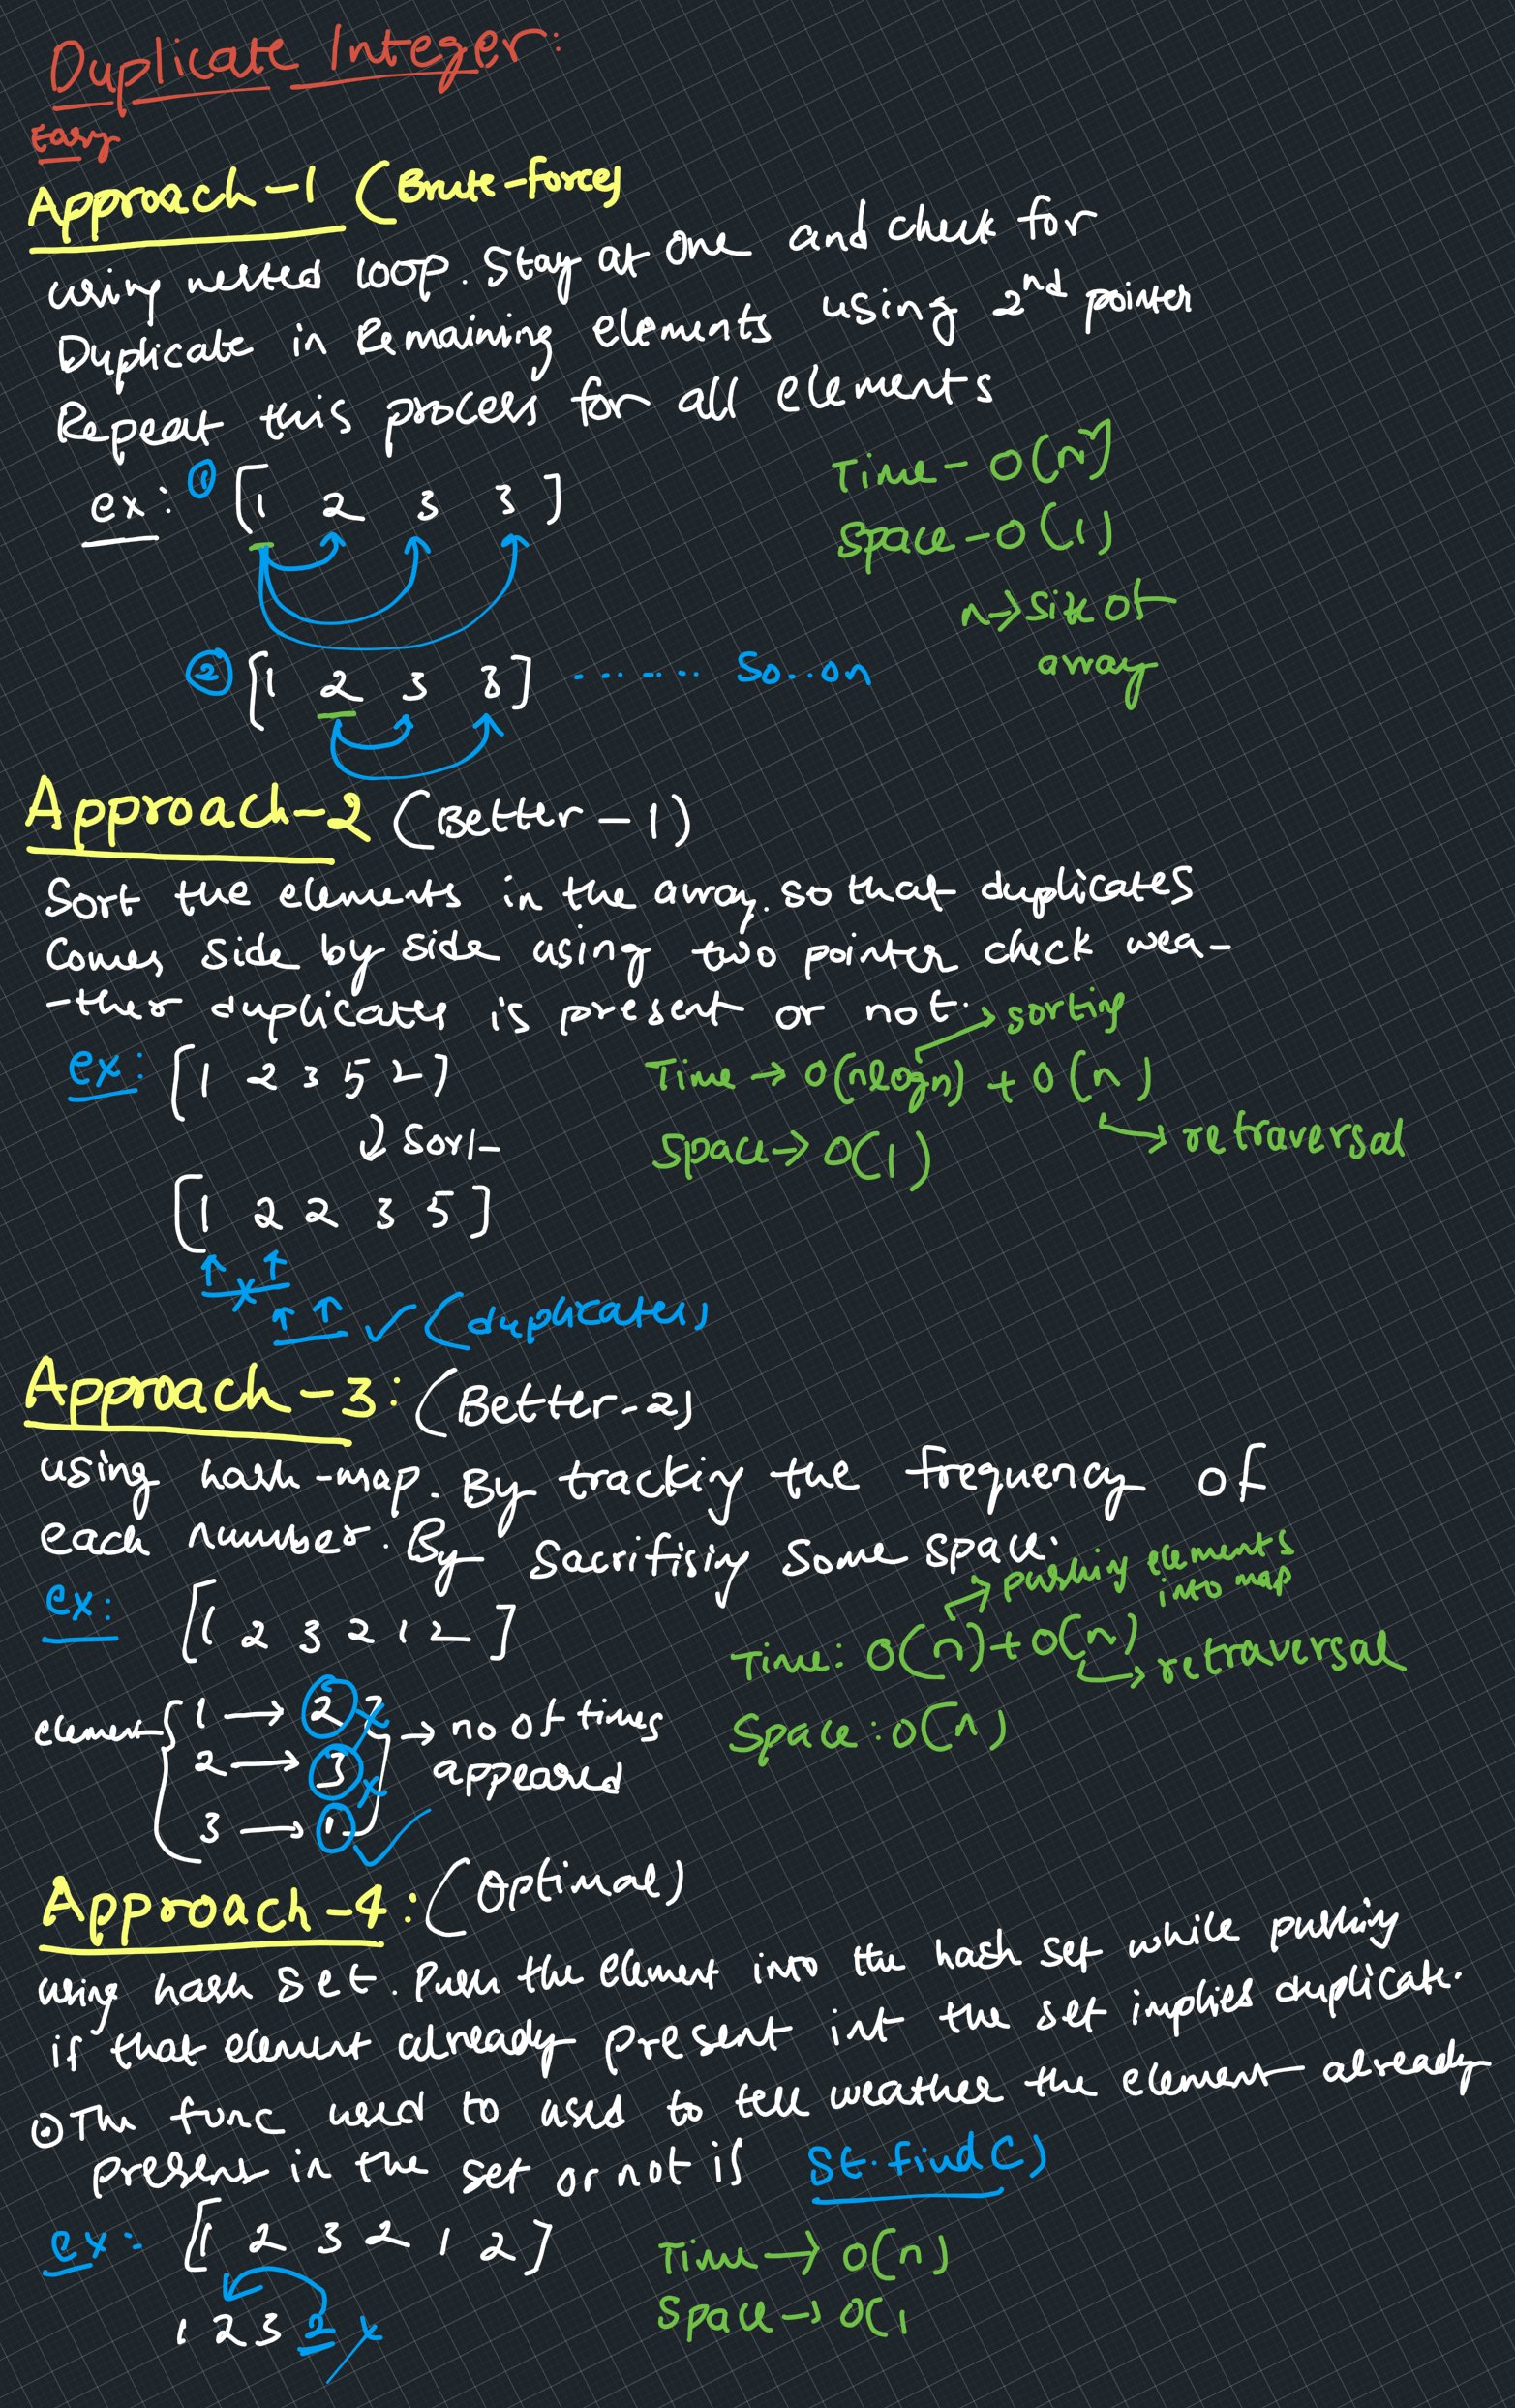 Duplicate Integer:
Easy
Approach-1 (Brute-force)
using nested loop. Stay at one and check for
Duplicate in Remaining elements using 2nd pointer
Repeat this process for all elements
ex: ① [1 2 3 3]
Time - O(n²)
Space - O(1)
n → size of
array
② [1 2 3 3] ....... So..on
Approach-2 (Better-1)
Sort the elements in the array. so that duplicates
Comes side by side using two pointer check wea-
-ther duplicates is present or not.
→ sorting
ex: [1 2 3 5 2]
Time → O(nlogn) + O(n)
→ retraversal
↓ Sort
Space → O(1)
[1 2 2 3 5]
↑ x ↑
↑ ↑ ✓ (duplicates)
Approach-3: (Better-2)
using hash-map. By tracking the frequency of
each number. By Sacrifising Some space.
→ pushing elements
into map
ex: [1 2 3 2 1 2]
Time: O(n)+O(n)
→ retraversal
Space: O(n)
element { 1 → 2 x
2 → 3 x
3 → 1 ✓
} → no of times
appeared
Approach-4: (Optimal)
using hash set. Push the element into the hash set while pushing
if that element already present int the set implies duplicate.
⊙ The func used to used to tell weather the element already
present in the set or not is st.find()
ex: [1 2 3 2 1 2]
Time → O(n)
Space → O(1
1 2 3 2 x